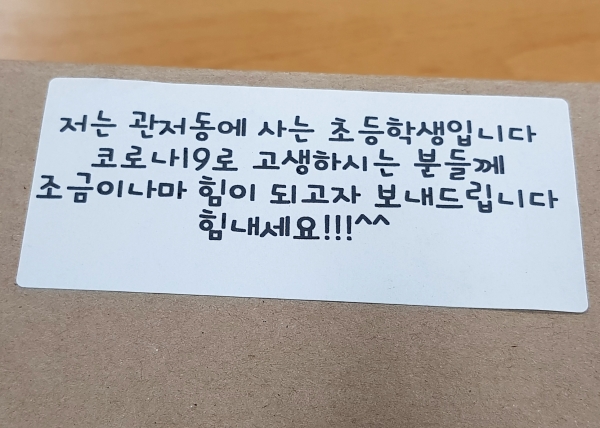 저는 관저동에 사는 초등학생입니다
코로나19로 고생하시는 분들께
조금이나마 힘이 되고자 보내드립니다
힘내세요!!!^^